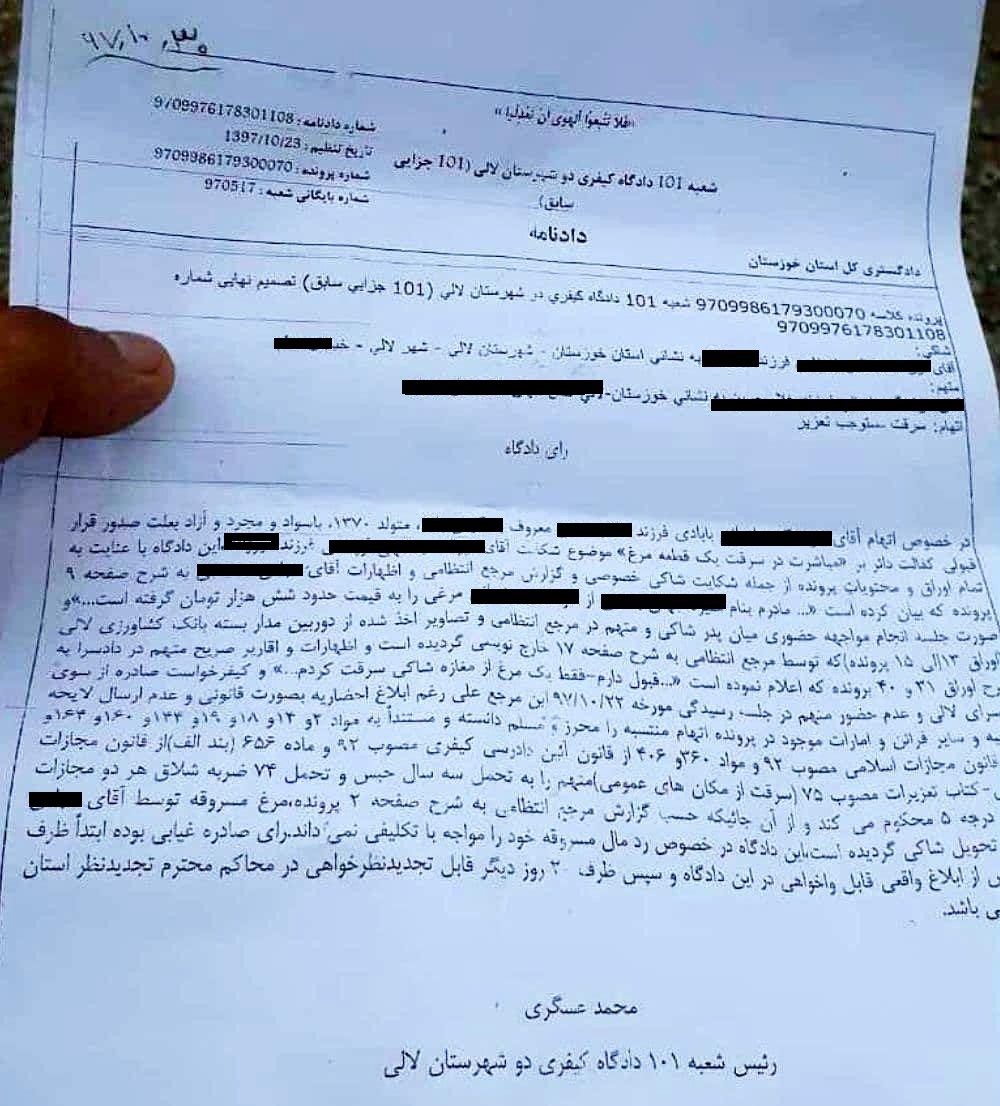 ۹۷٫۱۰٫۳۰
«فلا تتبعوا الهوی ان تعدلوا»
شماره دادنامه : 9709976178301108
تاریخ تنظیم : 1397/10/23
شماره پرونده : 9709986179300070
شماره بایگانی شعبه : 970517
شعبه 101 دادگاه کیفری دو شهرستان لالی (101 جزایی
سابق)
دادنامه
دادگستری کل استان خوزستان
پرونده کلاسه 9709986179300070 شعبه 101 دادگاه کیفري دو شهرستان لالي (101 جزايي سابق) تصميم نهايي شماره
9709976178301108
شاکي:
آقای فرزند به نشاني استان خوزستان - شهرستان لالي - شهر لالي -
متهم:
به نشاني خوزستان-لالي
اتهام: سرقت مستوجب تعزير
رای دادگاه
در خصوص اتهام آقای بابادی فرزند معروف ، متولد ۱۳۷۰، باسواد و مجرد و آزاد بعلت صدور قرار
قبولی کفالت دائر بر «مباشرت در سرقت یک قطعه مرغ» موضوع شکایت آقای فرزند این دادگاه با عنایت به
تمام اوراق و محتویات پرونده از جمله شکایت شاکی خصوصی و گزارش مرجع انتظامی و اظهارات آقای به شرح صفحه ۹
پرونده که بیان کرده است «... مادرم بنام از مرغی را به قیمت حدود شش هزار تومان گرفته است...»و
صورت جلسه انجام مواجهه حضوری میان پدر شاکی و متهم در مرجع انتظامی و تصاویر اخذ شده از دوربین مدار بسته بانک کشاورزی لالی
(اوراق ۱۳الی ۱۵ پرونده)که توسط مرجع انتظامی به شرح صفحه ۱۷ خارج نویسی گردیده است و اظهارات و اقاریر صریح متهم در دادسرا به
شرح اوراق ۳۱ و ۴۰ پرونده که اعلام نموده است «...قبول دارم-فقط یک مرغ از مغازه شاکی سرقت کردم...» و کیفرخواست صادره از سوی
دادسرای لالی و عدم حضور متهم در جلسه رسیدگی مورخه ۹۷/۱۰/۲۲ این مرجع علی رغم ابلاغ احضاریه بصورت قانونی و عدم ارسال لایحه
و سایر قرائن و امارات موجود در پرونده اتهام منتسبه را محرز و مسلم دانسته و مستنداً به مواد ۲و ۱۴و ۱۸و ۱۹و ۱۴۴و ۱۶۰و ۱۶۴و
قانون مجازات اسلامی مصوب ۹۲ و مواد ۳۶۰و ۴۰۶ از قانون آئین دادرسی کیفری مصوب ۹۲ و ماده ۶۵۶ (بند الف)از قانون مجازات
-کتاب تعزیرات مصوب ۷۵ (سرقت از مکان های عمومی)متهم را به تحمل سه سال حبس و تحمل ۷۴ ضربه شلاق هر دو مجازات
درجه ۵ محکوم می کند و از آن جائیکه حسب گزارش مرجع انتظامی به شرح صفحه ۲ پرونده،مرغ مسروقه توسط آقای
تحویل شاکی گردیده است،این دادگاه در خصوص رد مال مسروقه خود را مواجه با تکلیفی نمی داند.رای صادره غیابی بوده ابتداً ظرف
از ابلاغ واقعی قابل واخواهی در این دادگاه و سپس ظرف ۲۰ روز دیگر قابل تجدیدنظرخواهی در محاکم محترم تجدیدنظر استان
می باشد.
محمد عسگری
رئیس شعبه ۱۰۱ دادگاه کیفری دو شهرستان لالی